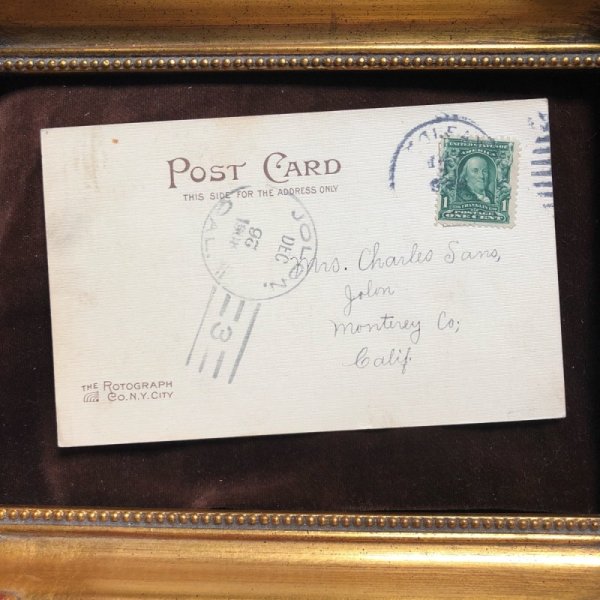 POST CARD
THIS SIDE FOR THE ADDRESS ONLY
UNITED STATES OF AMERICA
FRANKLIN
1 1
POSTAGE
ONE CENT
JOLON
DEC
26
CAL.
3
Mrs. Charles Sans,
Jolon
Monterey Co;
Calif.
THE ROTOGRAPH
CO. N.Y. CITY